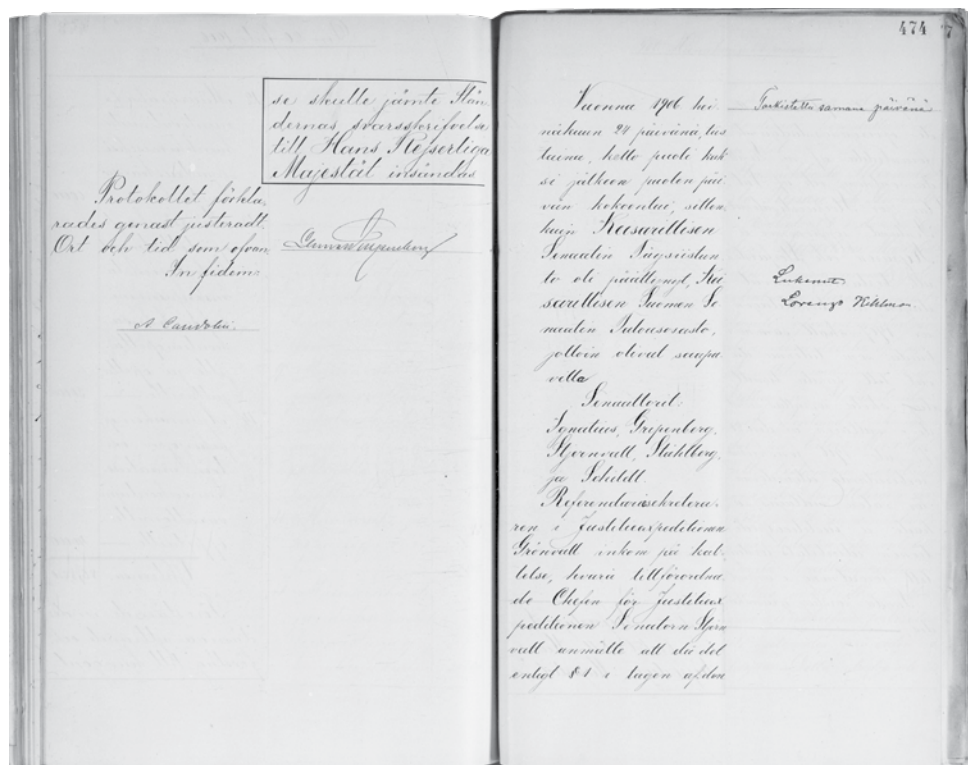 se skulle jämte Stän
dernas svarsskrifvelse
till Hans Kejserliga
Majestät insändas
Protokollet förkla,
rades genast justeradt.
Ort och tid som ofvan
In fidem:
474
7
Vuonna 1906 hei,
näkuun 24 päivänä, tiis
taina, kello puoli kak
si jälkeen puolen päi
vän kokoontui, sitten
kuin Keisarillisen
Senaatin Täysiistun
to oli päättynyt, Kei
sarillisen Suomen Se
naatin Talousosasto,
jolloin olivat saapu
villa
Senaattorit:
Ignatius, Gripenberg,
Stjernvall, Ståhlberg,
ja Schildt.
Referendariesekretera,
ren i Justitieexpeditionen
Grönvall inkom på kal,
lelse, hvarå tillförordna,
de Chefen för Justitieex
peditionen Senatorn Stjern
vall anmälte att då det
enligt § 1 i lagen
Tarkistettu samana päivänä
Lukenut